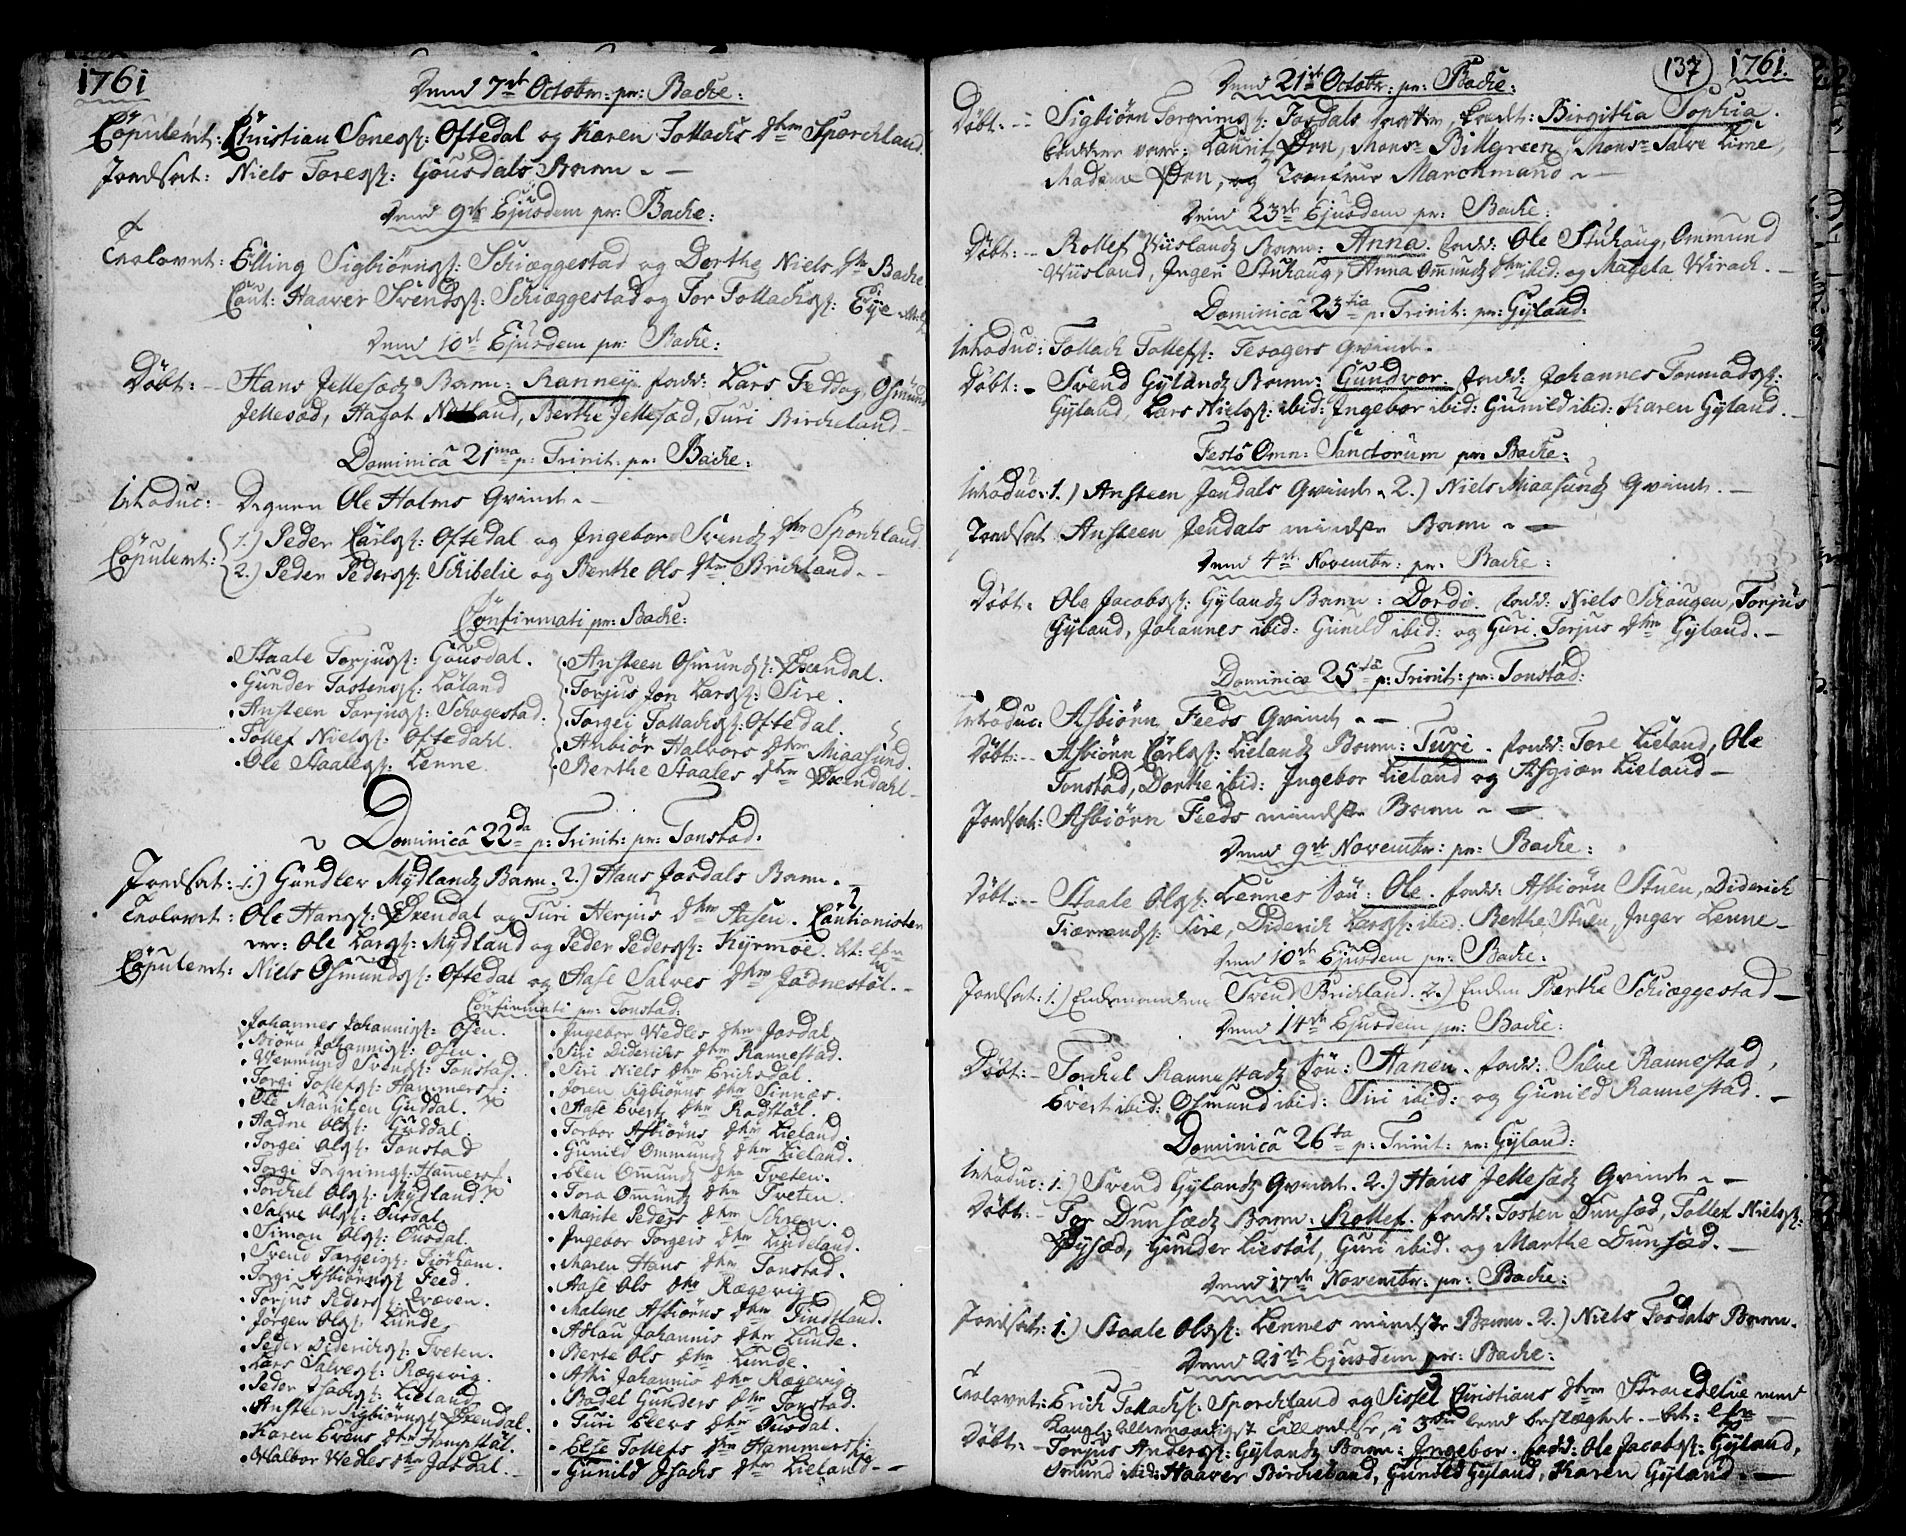 1761
Dend 7de Octobr: pr: Backe:
Copuleret: Christian Sones: Oftedal og Karen Tollachs dtr Sporchland.
Jordsat: Niels Tores: Gousdals Barn. -
Dend 9de Ejusdem pr: Backe:
Trolovet: Elling Sigbiørns: Schiæggestad og Dorthe Niels dtr Backe
Caut: Haaver Svends: Schiæggestad og Tor Tollachs: Eye
Dend 10de Ejusdem pr: Backe:
Døbt: - Hans Jellesæds Barn: Ranney. fadd: Lars Feddog, Osmund
Jellesæd, Hagot Netland, Berthe Jellesæd, Turi Birchelund -
Dominica 21ma p: Trinit: pr: Backe:
Introduc: - Degnen Ole Holms Qvinde -
Copuleret: 1.) Peder Carls: Oftedal og Ingebor Svends dtr Sporchland
2.) Peder Peders: Schibelie og Berthe Ols dtr Brichland -
Confirmati pr: Backe:
Staale Torjus: Gousdal.
Gunder Tostens: Løland
Ansteen Torjus: Schogestad.
Tollef Niels: Oftedahl.
Ole Staales: Lenne.
Ansteen Osmunds: Øxendal.
Torjus Jon Lars: Sire.
Torgei Tollachs: Oftedal.
Anbiør Halvors dtr Miaasund.
Berthe Staales dtr Øxendahl -
Dominica 22da p: Trinit: pr: Tonstad:
Jordsat: - 1.) Gundler Mydlands Barn. 2.) Hans Josdals Barn. -
Trolovet: Ole Hans: Øxendal og Turi Herjus dtr Aasen. Cautionister
var: Ole Lars: Mydland og Peder Peders: Kyrmoe.
Copuleret: Niels Osmunds: Oftedal og Aase Salves dtr Jødnestøl. -
Confirmati pr: Tonstad:
Johannes Johannis: Osen.
Biørn Johannis: Osen.
Wermund Svends: Tonstad.
Torgi Tollefs: Hammers:
Ole Mauritzen Guddal.
Aadne Ols: Guddal.
Torgei Ols: Tonstad
Torgi Torgrims: Hammers:
Torchel Ols: Mydland
Salve Ols: Ousdal
Simon Ols: Ousdal.
Svend Torgeis: Fiørham.
Torgi Asbiørns: Feed.
Torjus Peders: Qvæven.
Jørgen Ols: Lunde
Peder Dideriks: Tveten.
Lars Salves: Rægevig.
Peder Isachs: Lieland
Ansteen Sigbiørns: Øxendal.
Karen Evens dtr Hompstøl.
Halbor Wedles dtr Josdal. -
Ingebor Wedles dtr Josdal
Siri Diderichs dtr Rannestad.
Siri Niels dtr Erichsdal.
Joren Sigbiørns dtr Sinnæs.
Aase Everts dtr Rødstøl.
Torbor Asbiørns dtr Lieland.
Gunild Ommunds dtr Lieland.
Elen Ommund dtr Tveten.
Tora Omunds dtr Tveten.
Marite Peders dtr Schreen.
Ingebor Torgeis dtr Lindeland.
Maren Hans dtr Tonstad.
Aase Ols dtr Rægevig
Malene Asbiørns dtr Findtland.
Aslau Johannis dtr Lunde.
Berte Ols dtr Lunde.
Aski Johannis dtr Rægevig
Bodel Gunders dtr Tonstad.
Turi Elevs dtr Ousdal.
Else Tollefs dtr Hammers:
Gunild Isachs dtr Lieland -
137 1761.
Dend 21de Octobr: pr: Backe:
Døbt: - Sigbiørn Torgrims: Josdals datter, kaldt: Birgitha Sophia.
Faddere vare: Laurits Ørn, Monsr Billgreen, Monsr Salve Lime,
Madame Ørn, og Jomfrue Marchmand -
Dend 23de Ejusdem pr: Backe:
Døbt: - Rollef Wiislands Barn: Anna. fadd: Ole Stuhaug, Ommund
Wiisland, Ingeri Stuhaug, Anna Omunds dtr ibid: og Mageta Wirach. -
Dominica 23tia p: Trinit: pr: Gyland:
Introduc: Tollach Tollefs: Tesagers Qvinde.
Døbt: - Svend Gylands Barn: Gundvor. fadd: Johannes Tormods:
Gyland, Lars Niels: ibid: Ingebor ibid: Gunild ibid: Karen Gyland. -
Festo Omn: Sanctorum pr: Backe:
Introduc: 1.) Ansteen Jendals Qvinde. 2.) Niels Miaasunds Qvinde. -
Jordsat Ansteen Jendals mindste Barn. -
Dend 4de Novembr: pr: Backe:
Døbt. Ole Jacobs: Gylands Barn: Dordi. fadd: Niels Schougen, Torjus
Gyland, Johannes ibid: Gunild ibid: og Guri Torjus dtr Gyland. -
Dominica 25ta p: Trinit: pr: Tonstad:
Introduc: Asbiørn Feeds Qvinde -
Døbt: - Asbiørn Carls: Lielands Barn: Turi. fadd: Tore Lieland, Ole
Tonstad, Dorthe ibid: Ingebor Lieland og Asgiær Lieland -
Jordsat: Asbiørn Feeds mindste Barn. -
Dend 9de Novembr: pr: Backe:
Døbt: - Staale Ols: Lennes Søn: Ole. fadd: Asbiørn Stuen, Diderich
Tiærrands: Sire, Diderich Lars: ibid: Berthe Stuen, Inger Lenne -
Dend 10de Ejusdem pr: Backe:
Jordsat: 1.) Enkemanden Svend Brichland. 2.) Enken Berthe Schiæggestad -
Dend 14de Ejusdem pr: Backe:
Døbt: - Torchel Rannestads Søn: Hanen. fadd: Salve Rannestad,
Evert ibid: Osmund ibid: Siri ibid: og Gunild Rannestad. -
Dominica 26ta p: Trinit: pr: Gyland:
Introduc: 1.) Svend Gylands Qvinde. 2.) Hans Jellesæds Qvinde -
Døbt. - Tor Dunsæds Barn: Rollef. fadd: Tosten Dunsæd, Tollef Niels:
Øysæd, Gunder Liestøl, Guri ibid. og Marthe Dunsæd. -
Dend 17de Novembr: pr: Backe:
Jordsat: 1.) Staale Ols: Lennes mindste Barn. 2.) Niels Josdals Barn.
Dend 21de Ejusdem pr: Backe:
Trolovet: Erich Tollachs: Sporchland og Sissel Christians dtr Strandelie med
Kongl: allernaadigst Tilladelse, i 3die leed beslægtede. -
Døbt: - Torjus Anders: Gylands Barn: Ingebor. fadd: Ole Jacobs: Gyland,
Omund ibid: Haaver Bircheland, Gunild Gyland, Karen Gyland. -